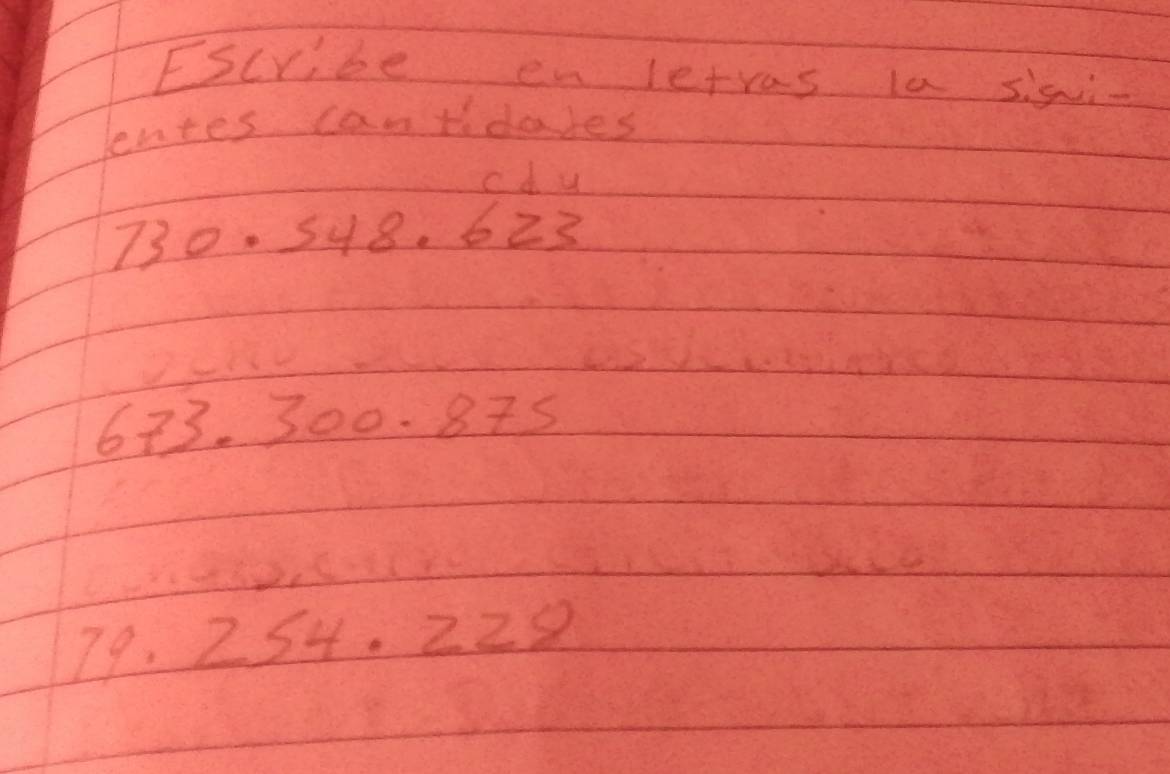 Escribe en letras la sigui-
entes cantidades
cdu
730.548.623
673.300.875
79.254.229